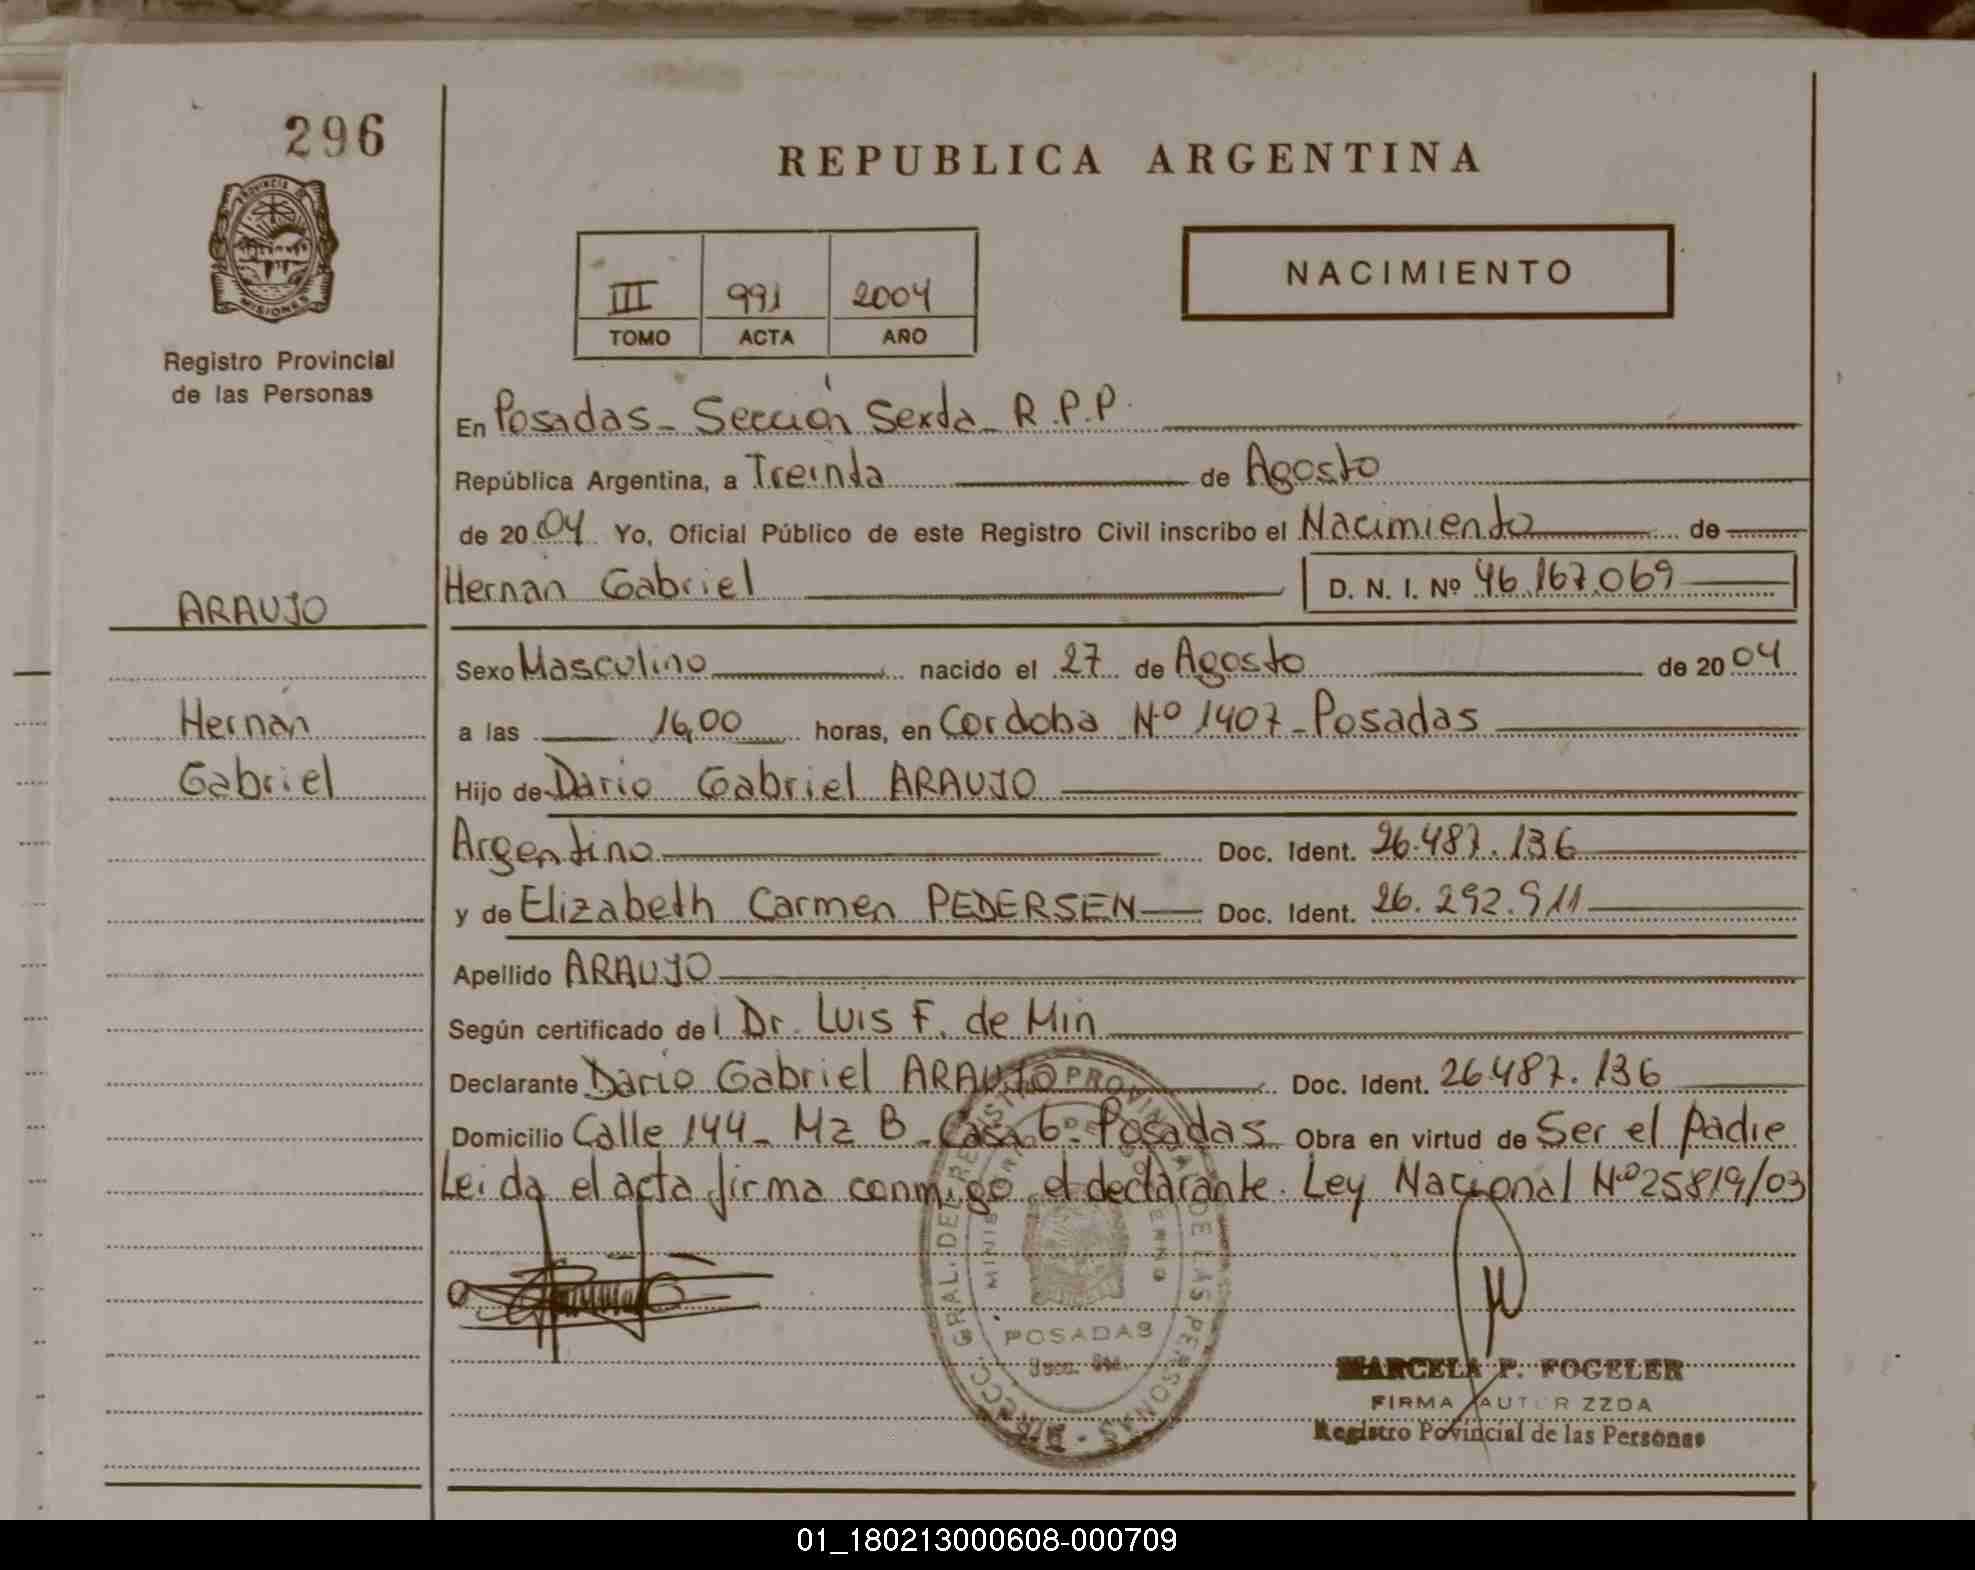 296
REPUBLICA ARGENTINA
PROVINCIA DE
MISIONES
Registro Provincial
de las Personas
III 991 2004
TOMO ACTA AÑO
NACIMIENTO
En Posadas - Sección Sexta - R.P.P.
República Argentina, a Treinta de Agosto
de 2004 Yo, Oficial Público de este Registro Civil inscribo el Nacimiento de
ARAUJO
Hernán Gabriel D. N. I. Nº 46.167.069
Sexo Masculino nacido el 27 de Agosto de 2004
Hernán
a las 16,00 horas, en Cordoba Nº 1407 - Posadas
Gabriel
Hijo de Dario Gabriel ARAUJO
Argentino Doc. Ident. 26.487.136
y de Elizabeth Carmen PEDERSEN Doc. Ident. 26.292.911
Apellido ARAUJO
Según certificado del Dr. Luis F. de Min
Declarante Dario Gabriel ARAUJO Doc. Ident. 26.487.136
Domicilio Calle 144 - Mz B - Casa 6 - Posadas Obra en virtud de Ser el padre
Leida el acta firma conmigo el declarante. Ley Nacional Nº 25819/03
GRAL. DEL REGISTRO PROVINCIAL DE LAS PERSONAS
MINISTERIO DE GOBIERNO
POSADAS
MARCELA P. FOGELER
FIRMA AUTORIZZDA
Registro Povincial de las Personas
01_180213000608-000709